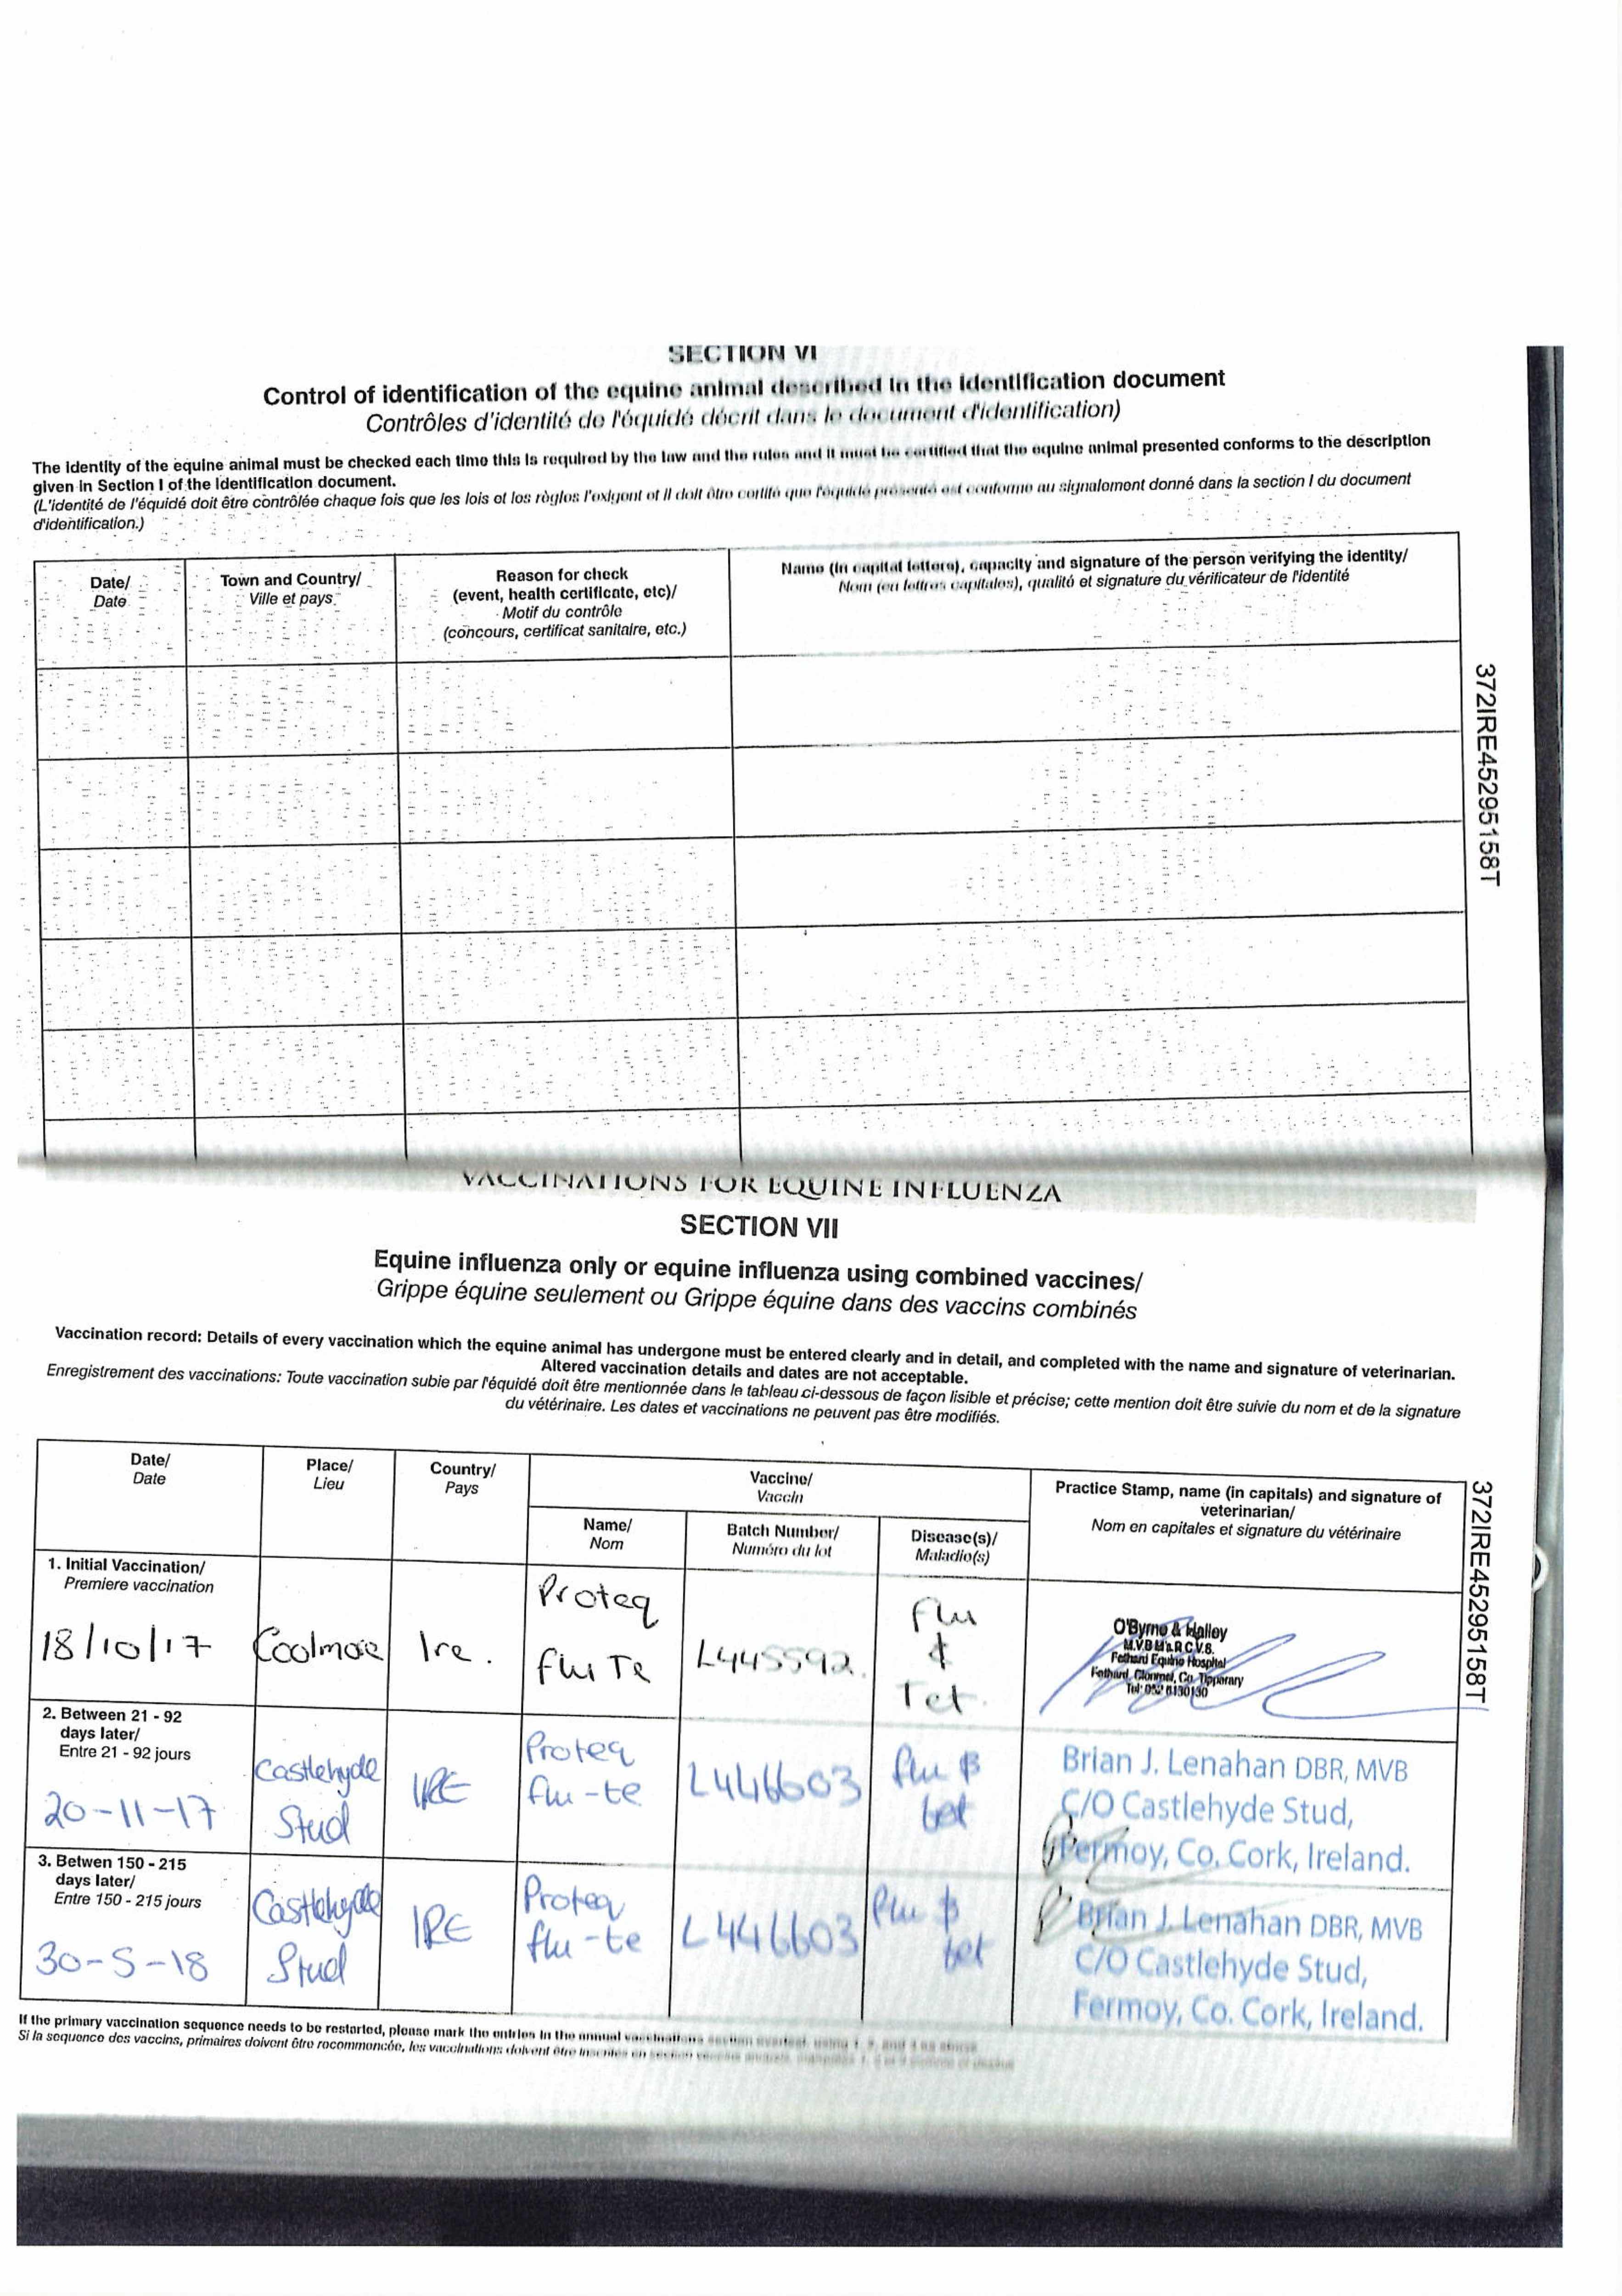 SECTION VI
Control of identification of the equine animal described in the identification document
Contrôles d'identité de l'équidé décrit dans le document d'identification)
The identity of the equine animal must be checked each time this is required by the law and the rules and it must be certified that the equine animal presented conforms to the description
given in Section I of the identification document.
(L'identité de l'équidé doit être contrôlée chaque fois que les lois et les règles l'exigent et il doit être certifié que l'équidé présenté est conforme au signalement donné dans la section I du document
d'identification.)
Date/
Date
Town and Country/
Ville et pays
Reason for check
(event, health certificate, etc)/
Motif du contrôle
(concours, certificat sanitaire, etc.)
Name (in capital letters), capacity and signature of the person verifying the identity/
Nom (en lettres capitales), qualité et signature du vérificateur de l'identité
372IRE45295158T
VACCINATIONS FOR EQUINE INFLUENZA
SECTION VII
Equine influenza only or equine influenza using combined vaccines/
Grippe équine seulement ou Grippe équine dans des vaccins combinés
Vaccination record: Details of every vaccination which the equine animal has undergone must be entered clearly and in detail, and completed with the name and signature of veterinarian.
Altered vaccination details and dates are not acceptable.
Enregistrement des vaccinations: Toute vaccination subie par l'équidé doit être mentionnée dans le tableau ci-dessous de façon lisible et précise; cette mention doit être suivie du nom et de la signature
du vétérinaire. Les dates et vaccinations ne peuvent pas être modifiés.
Date/
Date
Place/
Lieu
Country/
Pays
Vaccine/
Vaccin
Name/
Nom
Batch Number/
Numéro du lot
Disease(s)/
Maladie(s)
Practice Stamp, name (in capitals) and signature of
veterinarian/
Nom en capitales et signature du vétérinaire
372IRE45295158T
1. Initial Vaccination/
Premiere vaccination
18/10/17
Coolmore
Ire.
Proteq
flu Te
L445592
Flu
&
Tet.
O'Byrne & Halley
M.V.B M's R.C.V.S.
Fethard Equine Hospital
Fethard, Clonmel, Co. Tipperary
Tel: 052 6130130
2. Between 21 - 92
days later/
Entre 21 - 92 jours
20-11-17
Castlehyde
Stud
IRE
Proteq
flu-te
L446603
flu &
tet
Brian J. Lenahan DBR, MVB
C/O Castlehyde Stud,
Fermoy, Co. Cork, Ireland.
3. Betwen 150 - 215
days later/
Entre 150 - 215 jours
30-5-18
Castlehyde
Stud
IRE
Proteq
flu-te
L446603
flu &
tet
Brian J. Lenahan DBR, MVB
C/O Castlehyde Stud,
Fermoy, Co. Cork, Ireland.
If the primary vaccination sequence needs to be restarted, please mark the entries in the annual vaccinations section
Si la sequence des vaccins, primaires doivent être recommencée, les vaccinations doivent être inscrites en section